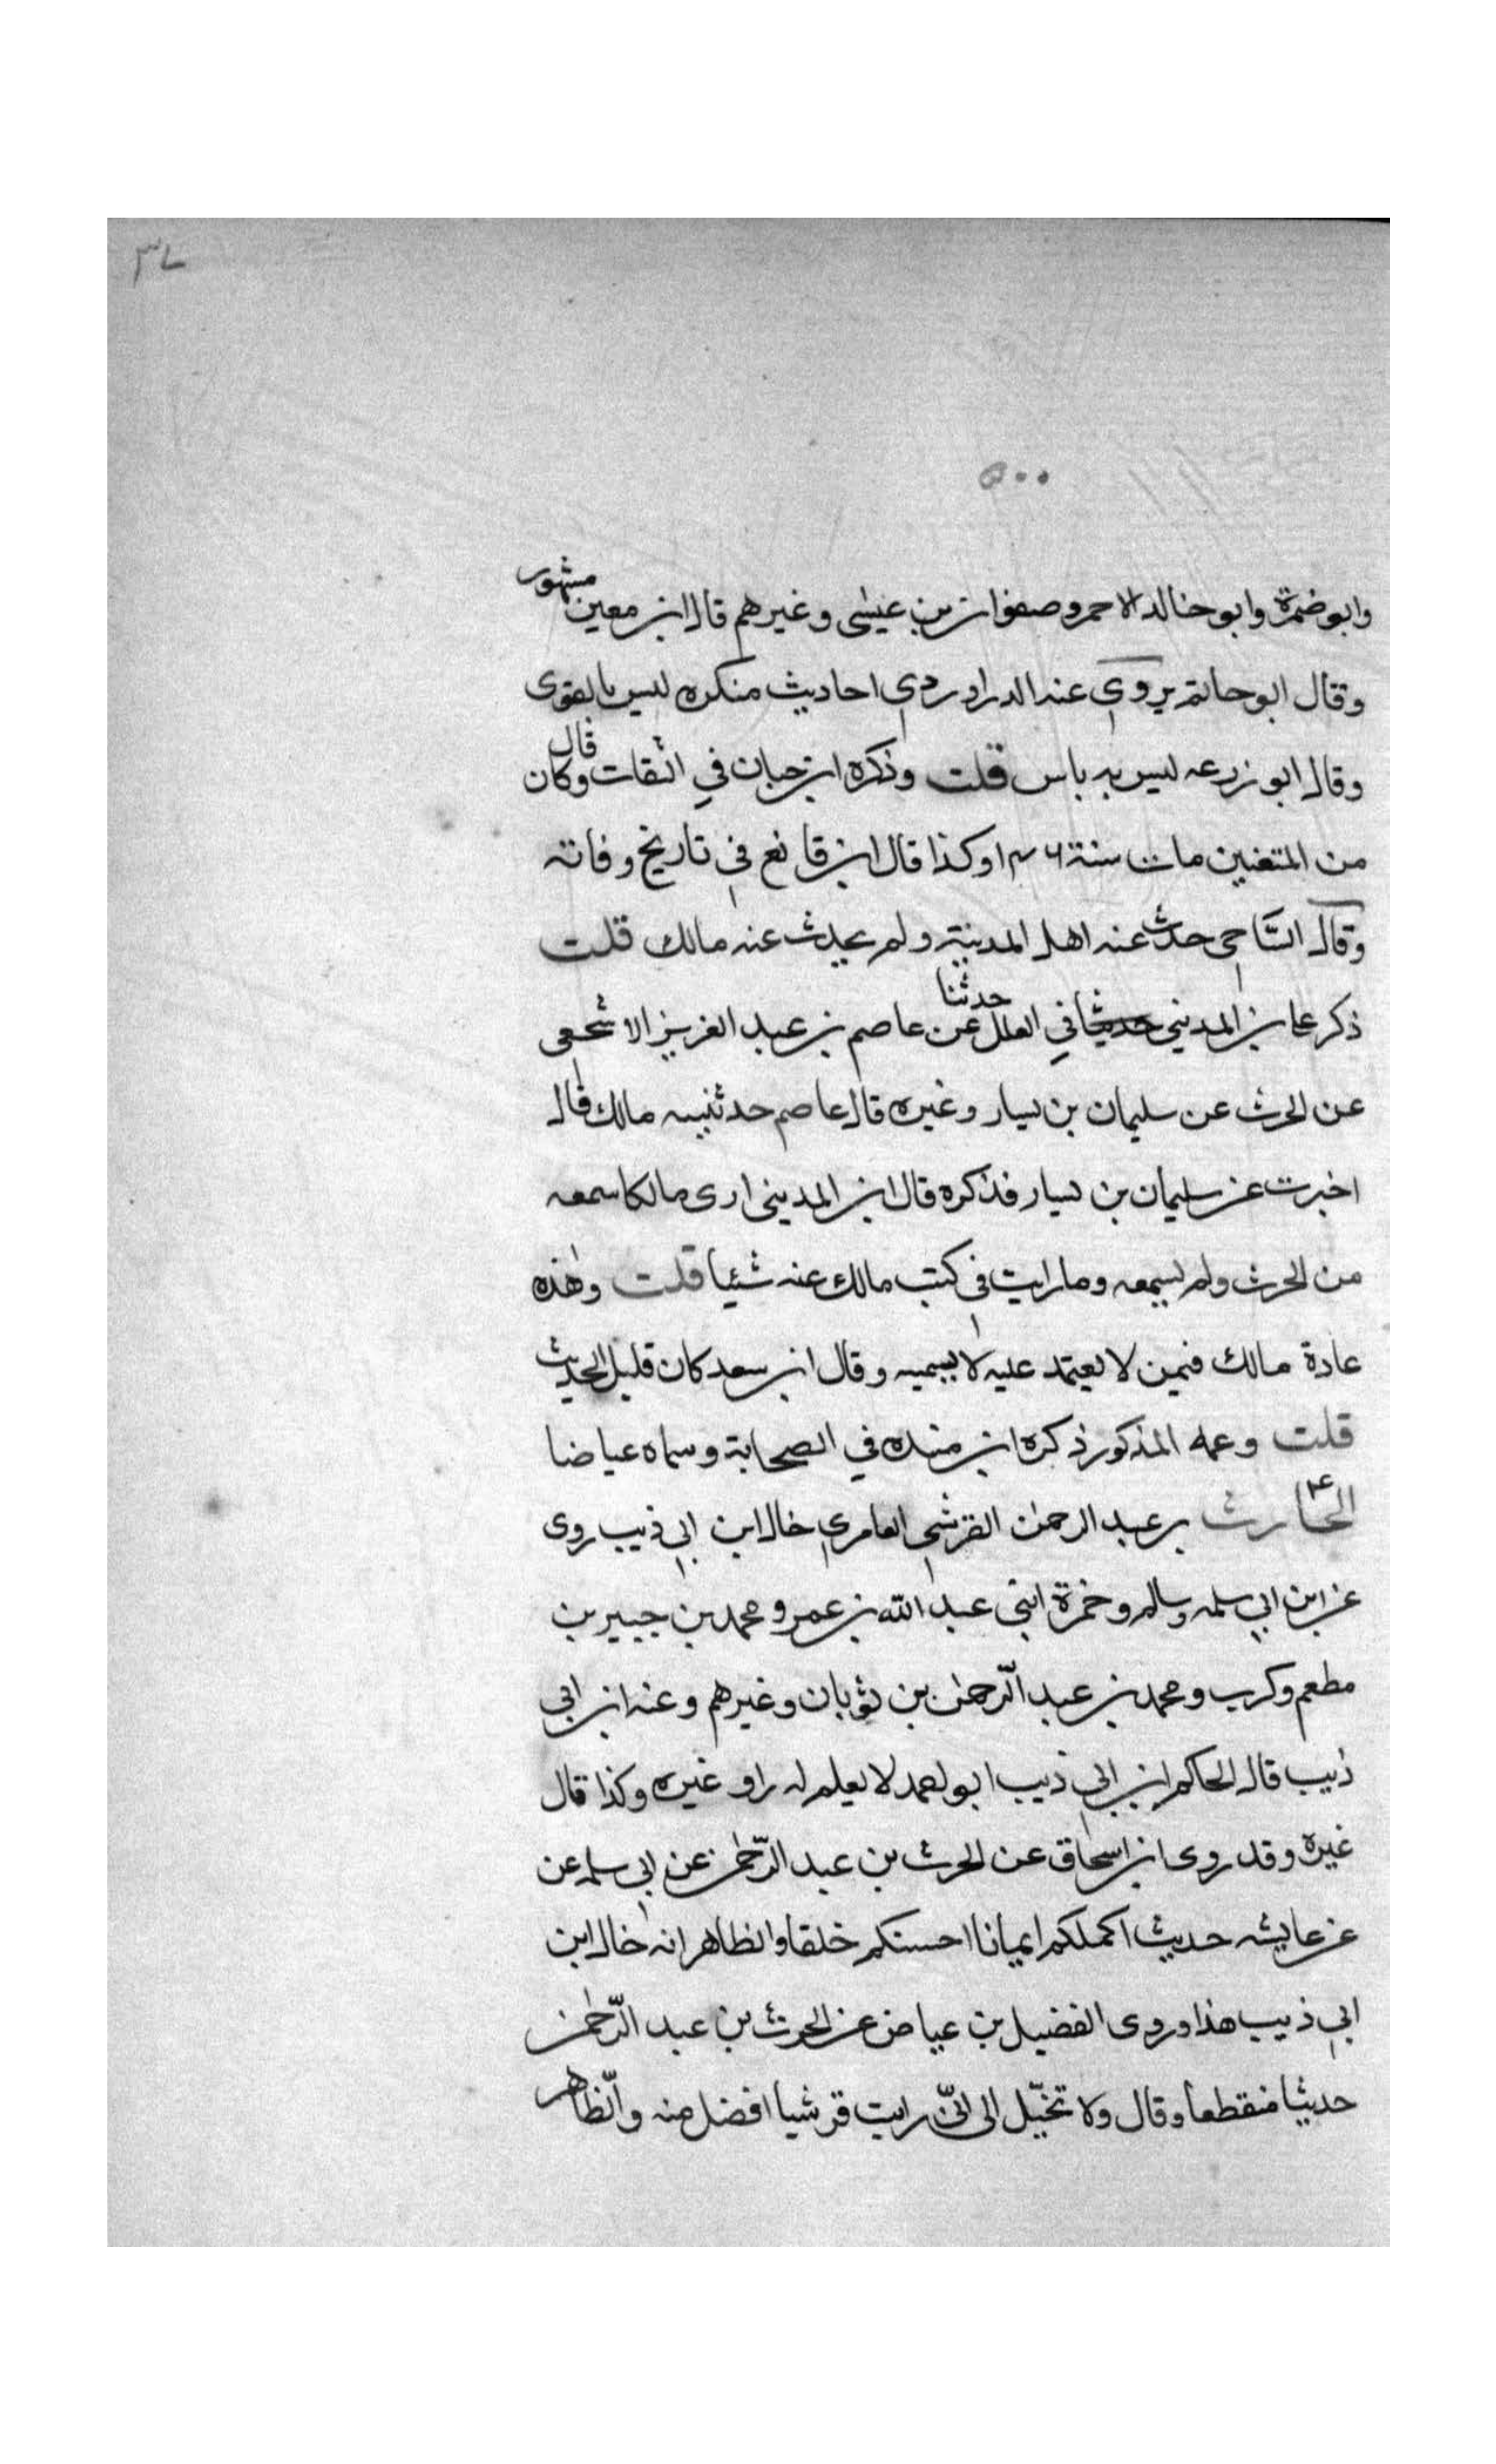 ٣٧
٥٠٠
وابو ضمرة وابو خالد الاحمر وصفوان بن عيسى وغيرهم قال ابن معين مشهور
وقال ابو حاتم يروي عنه الدراوردي احاديث منكره ليس بالقوى
وقال ابو زرعه ليس به باس قلت وذكره ابن حبان في الثقات وقال كان
من المتقنين مات سنة ١٤٦ وكذا قال ابن قانع في تاريخ وفاته
وقال الساجي حدث عنه اهل المدينة ولم يحدث عنه مالك قلت
ذكر على بن المديني في العلل حدثنا عن عاصم بن عبد العزيز الاشجعى
عن الحرث عن سليمان بن يسار وغيره قال عاصم حدثنيه مالك قال
اخبرت عن سليمان بن يسار فذكره قال ابن المدينى ارى مالكا سمعه
من الحرث ولم يسمه وما رايت في كتب مالك عنه شئيا قلت وهذه
عادة مالك فيمن لا يعتمد عليه لا يسميه وقال ابن سعد كان قليل الحديث
قلت وعمه المذكور ذكره ابن منده في الصحابة وسماه عياضا
الحارث بن عبد الرحمن القرشي العامري خال ابن ابي ذيب روى
عن ابن ابي سلمه وسالم وحمزة ابنى عبد الله بن عمر ومحمد بن جبير بن
مطعم وكريب ومحمد بن عبد الرحمن بن ثوبان وغيرهم وعنه ابن ابى
ذيب قال الحاكم ابن ابي ذيب ابو احمد لا يعلم له راو غيره وكذا قال
غيره وقد روى ابن اسحاق عن الحرث بن عبد الرحمن عن ابي سلمه عن
عن عايشه حديث اكملكم ايمانا احسنكم خلقا والظاهر انه خال ابن
ابي ذيب هذا وروى الفضيل بن عياض عن الحرث بن عبد الرحمن
حديثا منقطعا وقال ولا تخيّل الى انّى رايت قرشيا افضل منه والظاهر